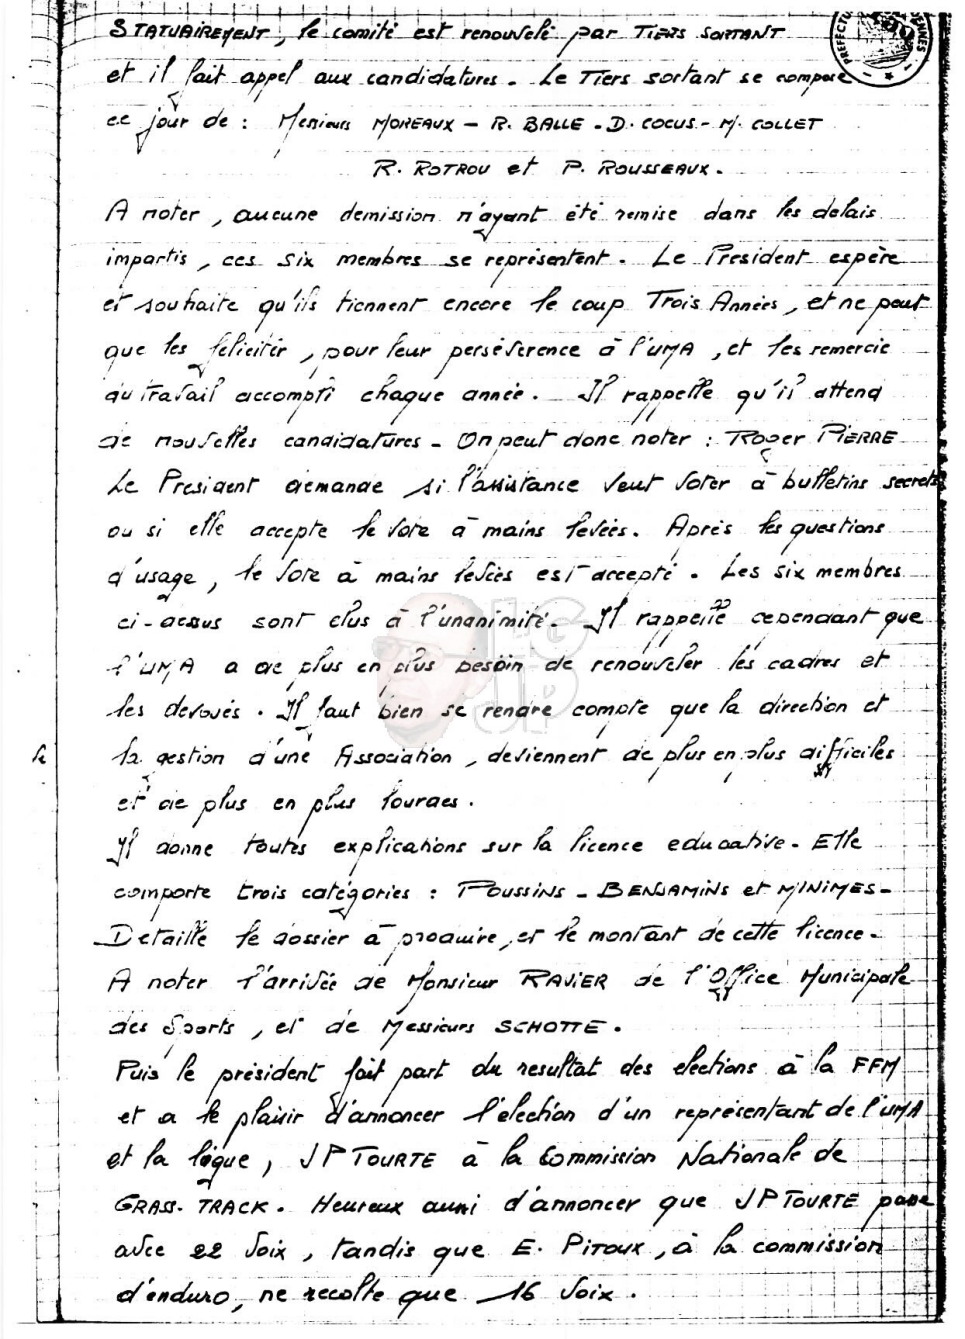 STATUAIREMENT, le comité est renouvelé par TIERS SORTANT
et il fait appel aux candidatures. Le Tiers sortant se compose
ce jour de : Messieurs MOREAUX - R. BALLE - D. COCUS - M. COLLET
R. ROTROU et P. ROUSSEAUX.
A noter, aucune demission n'ayant été remise dans les delais
impartis, ces six membres se représentent. Le President espère
et souhaite qu'ils tiennent encore le coup Trois Années, et ne peut
que les féliciter, pour leur persévérence à l'UMA, et les remercie
du travail accompli chaque année. Il rappelle qu'il attend
de nouvelles candidatures - On peut donc noter : Roger PIERRE
Le President demande si l'assistance veut voter à bulletins secrets
ou si elle accepte le vote à mains levées. Après les questions
d'usage, le vote à mains levées est accepté. Les six membres
ci-dessus sont elus à l'unanimité. Il rappelle cependant que
l'UMA a de plus en plus besoin de renouveler les cadres et
les devoués. Il faut bien se rendre compte que la direction et
la gestion d'une Association, deviennent de plus en plus difficiles
et de plus en plus lourdes.
Il donne toutes explications sur la licence educative - Elle
comporte trois catégories : POUSSINS - BENJAMINS et MINIMES -
Detaille le dossier à produire, et le montant de cette licence -
A noter l'arrivée de Monsieur RAVIER de l'Office Municipale
des Sports, et de Messieurs SCHOTTE.
Puis le président fait part du resultat des elections à la FFM
et a le plaisir d'annoncer l'election d'un représentant de l'UMA
et la ligue, JP TOURTE à la Commission Nationale de
GRASS-TRACK. Heureux aussi d'annoncer que JP TOURTE passe
avec 22 voix, tandis que E. PITOUX, à la commission
d'enduro, ne recolte que 16 voix.
LG
JP